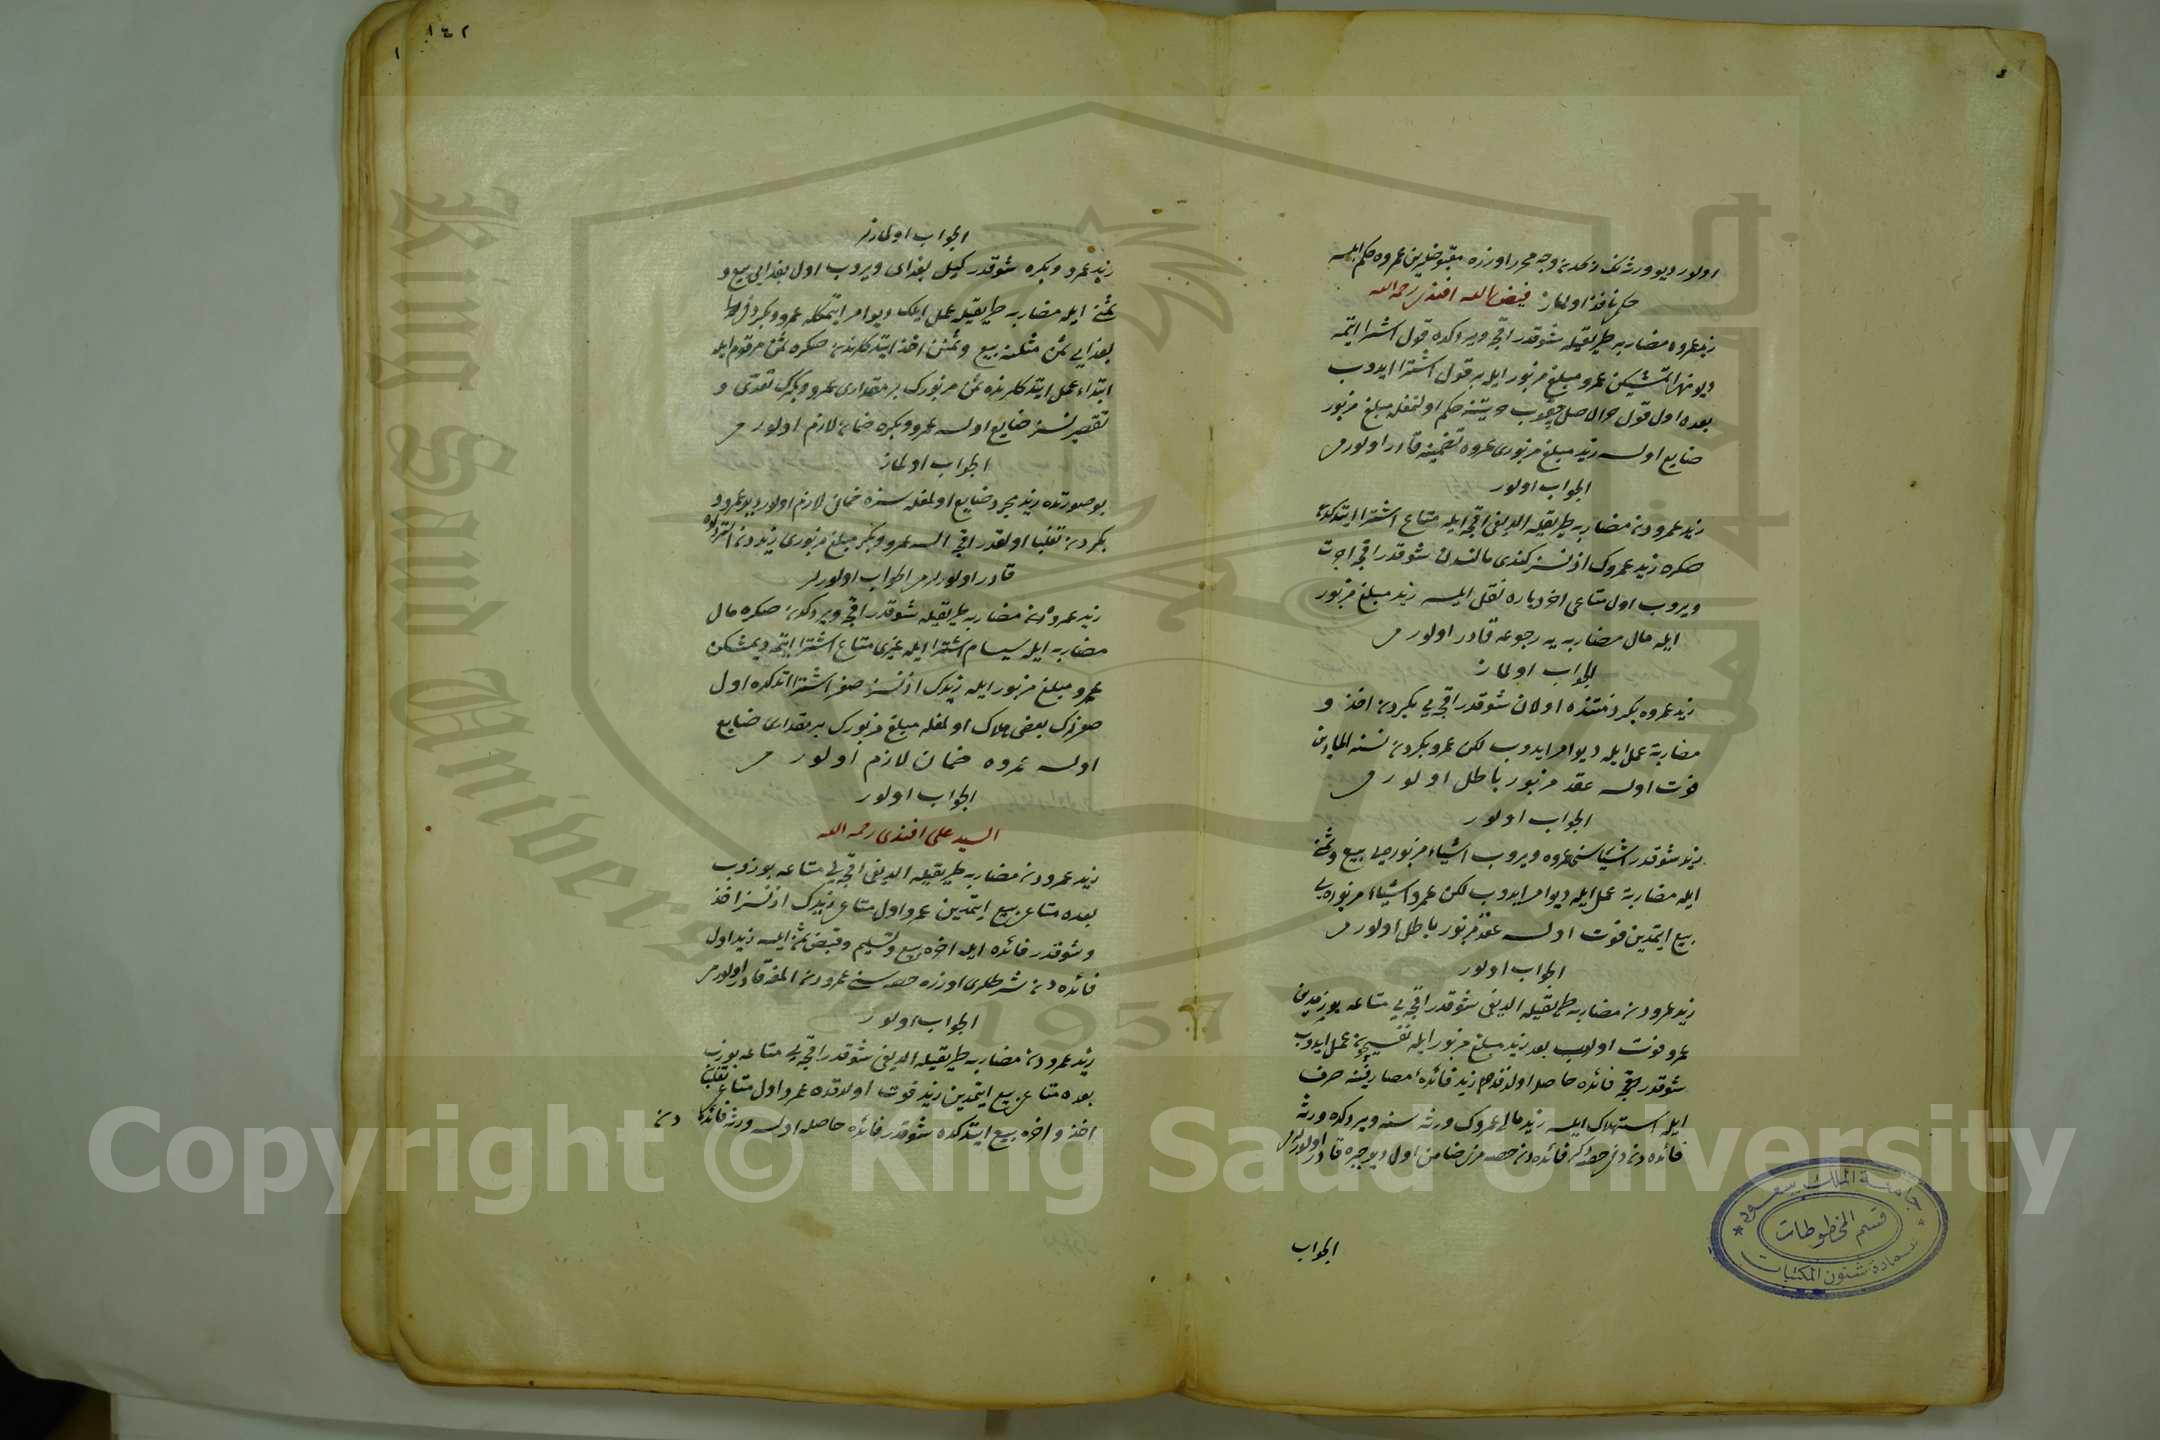 اولور ديو ورثه نك وجه محرر اوزره عمروه حكم ايلسه
حكمى نافذ اولماز فيض الله افندى رحمه الله
زيد عمروه مضاربه طريقيله شوقدر اقچه ويردكده قول اشترا ايتمه
ديو نهى ايتمشيكن عمرو مبلغ مزبور ايله بر قول اشترا ايدوب
بعده اول قول حكم اولنمغله مبلغ مزبور
ضايع اولسه زيد مبلغ مزبورى عمروه تضمينه قادر اولور مى
الجواب اولور
زيد عمرودن مضاربه طريقيله الديغى اقچه ايله متاع اشترا ايتدكدن
صكره زيد عمروك اذنسز كندى مالندن شوقدر اقچه اجرت
ويروب اول متاعى اخر دياره نقل ايلسه زيد مبلغ مزبور
ايله مال مضاربه يه رجوعه قادر اولور مى
الجواب اولماز
زيد عمروه بكر ذمتنده اولان شوقدر اقچه يى بكردن اخذ و
مضاربة عمل ايله ديو امر ايدوب لكن عمرو بكردن نسنه المادين
فوت اولسه عقد مزبور باطل اولور مى
الجواب اولور
زيد شوقدر اشياسنى عمروه ويروب اشياء مزبوره يى بيع و ثمنى
ايله مضاربة عمل ايله ديو امر ايدوب لكن عمرو اشياء مزبوره يى
بيع ايتمدين فوت اولسه عقد مزبور باطل اولور مى
الجواب اولور
زيد عمرودن مضاربه طريقيله الديغى شوقدر اقچه يى متاعه بوزمدين
عمرو فوت اولوب بعده زيد مبلغ مزبور ايله عمل ايدوب
شوقدر اقچه فائده حاصل اولدقده زيد فائده مصارفنه صرف
ايله استهلاك ايلسه زيد مالى عمروك ورثه سنه ويردكده ورثه
فائده دن دخى حصه فائده دن حصه مزى ضامن اول ديو جبره قادر اولورلر مى
الجواب
١٤٢
الجواب اولماز
زيد عمرو و بكره شوقدر كيل بغداى ويروب اول بغدايى بيع و
ثمنى ايله مضاربه طريقيله عمل ايلك ديو امر ايتمكله عمرو و بكر دخى
بغدايى ثمن مثلنه بيع و ثمنن اخذ ايتدكلرندن صكره ثمن مرقوم ايله
ابتداء عمل ايتدكلرنده ثمن مزبورك بر مقدارى عمرو و بكرك تعدى و
تقصيرلرنسز ضايع اولسه عمرو و بكره ضمان لازم اولور مى
الجواب اولماز
بو صورتده زيد مجرد ضايع اولمغله سزه ضمان لازم اولور ديو عمرو و
بكردن تغلبا اولقدر اقچه السه عمرو و بكر مبلغ مزبورى زيددن استرداده
قادر اولورلر مى الجواب اولورلر
زيد عمروه مضاربه طريقيله شوقدر اقچه ويردكدن صكره مال
مضاربه ايله سيسام اشترا ايله غيرى متاع اشترا ايتمه ديمشكن
عمرو مبلغ مزبور ايله زيدك اذنسز صغر اشترا ايتدكده اول
صغرك بعضى هلاك اولمغله مبلغ مزبورك بر مقدارى ضايع
اولسه عمروه ضمان لازم اولور مى
الجواب اولور
السيد على افندى رحمه الله
زيد عمرودن مضاربه طريقيله الديغى اقچه يى متاعه بوزوب
بعده متاعى بيع ايتمدين عمرو اول متاعى زيدك اذنسز اخذ
و شوقدر فائده ايله اخره بيع و تسليم و قبض ثمن ايلسه زيد اول
فائده دن شرطلرى اوزره حصه سنى عمرودن المغه قادر اولور مى
الجواب اولور
زيد عمرودن مضاربه طريقيله الديغى شوقدر اقچه يى متاعه بوزوب
بعده متاعى بيع ايتمدين زيد فوت اولدقده عمرو اول متاعى تغلبا
اخذ و اخره بيع ايتدكده شوقدر فائده حاصله اولسه ورثه فائده دن
جامعة الملك سعود
قسم المخطوطات
عمادة شئون المكتبات
King Saud University
1957
Copyright © King Saud University